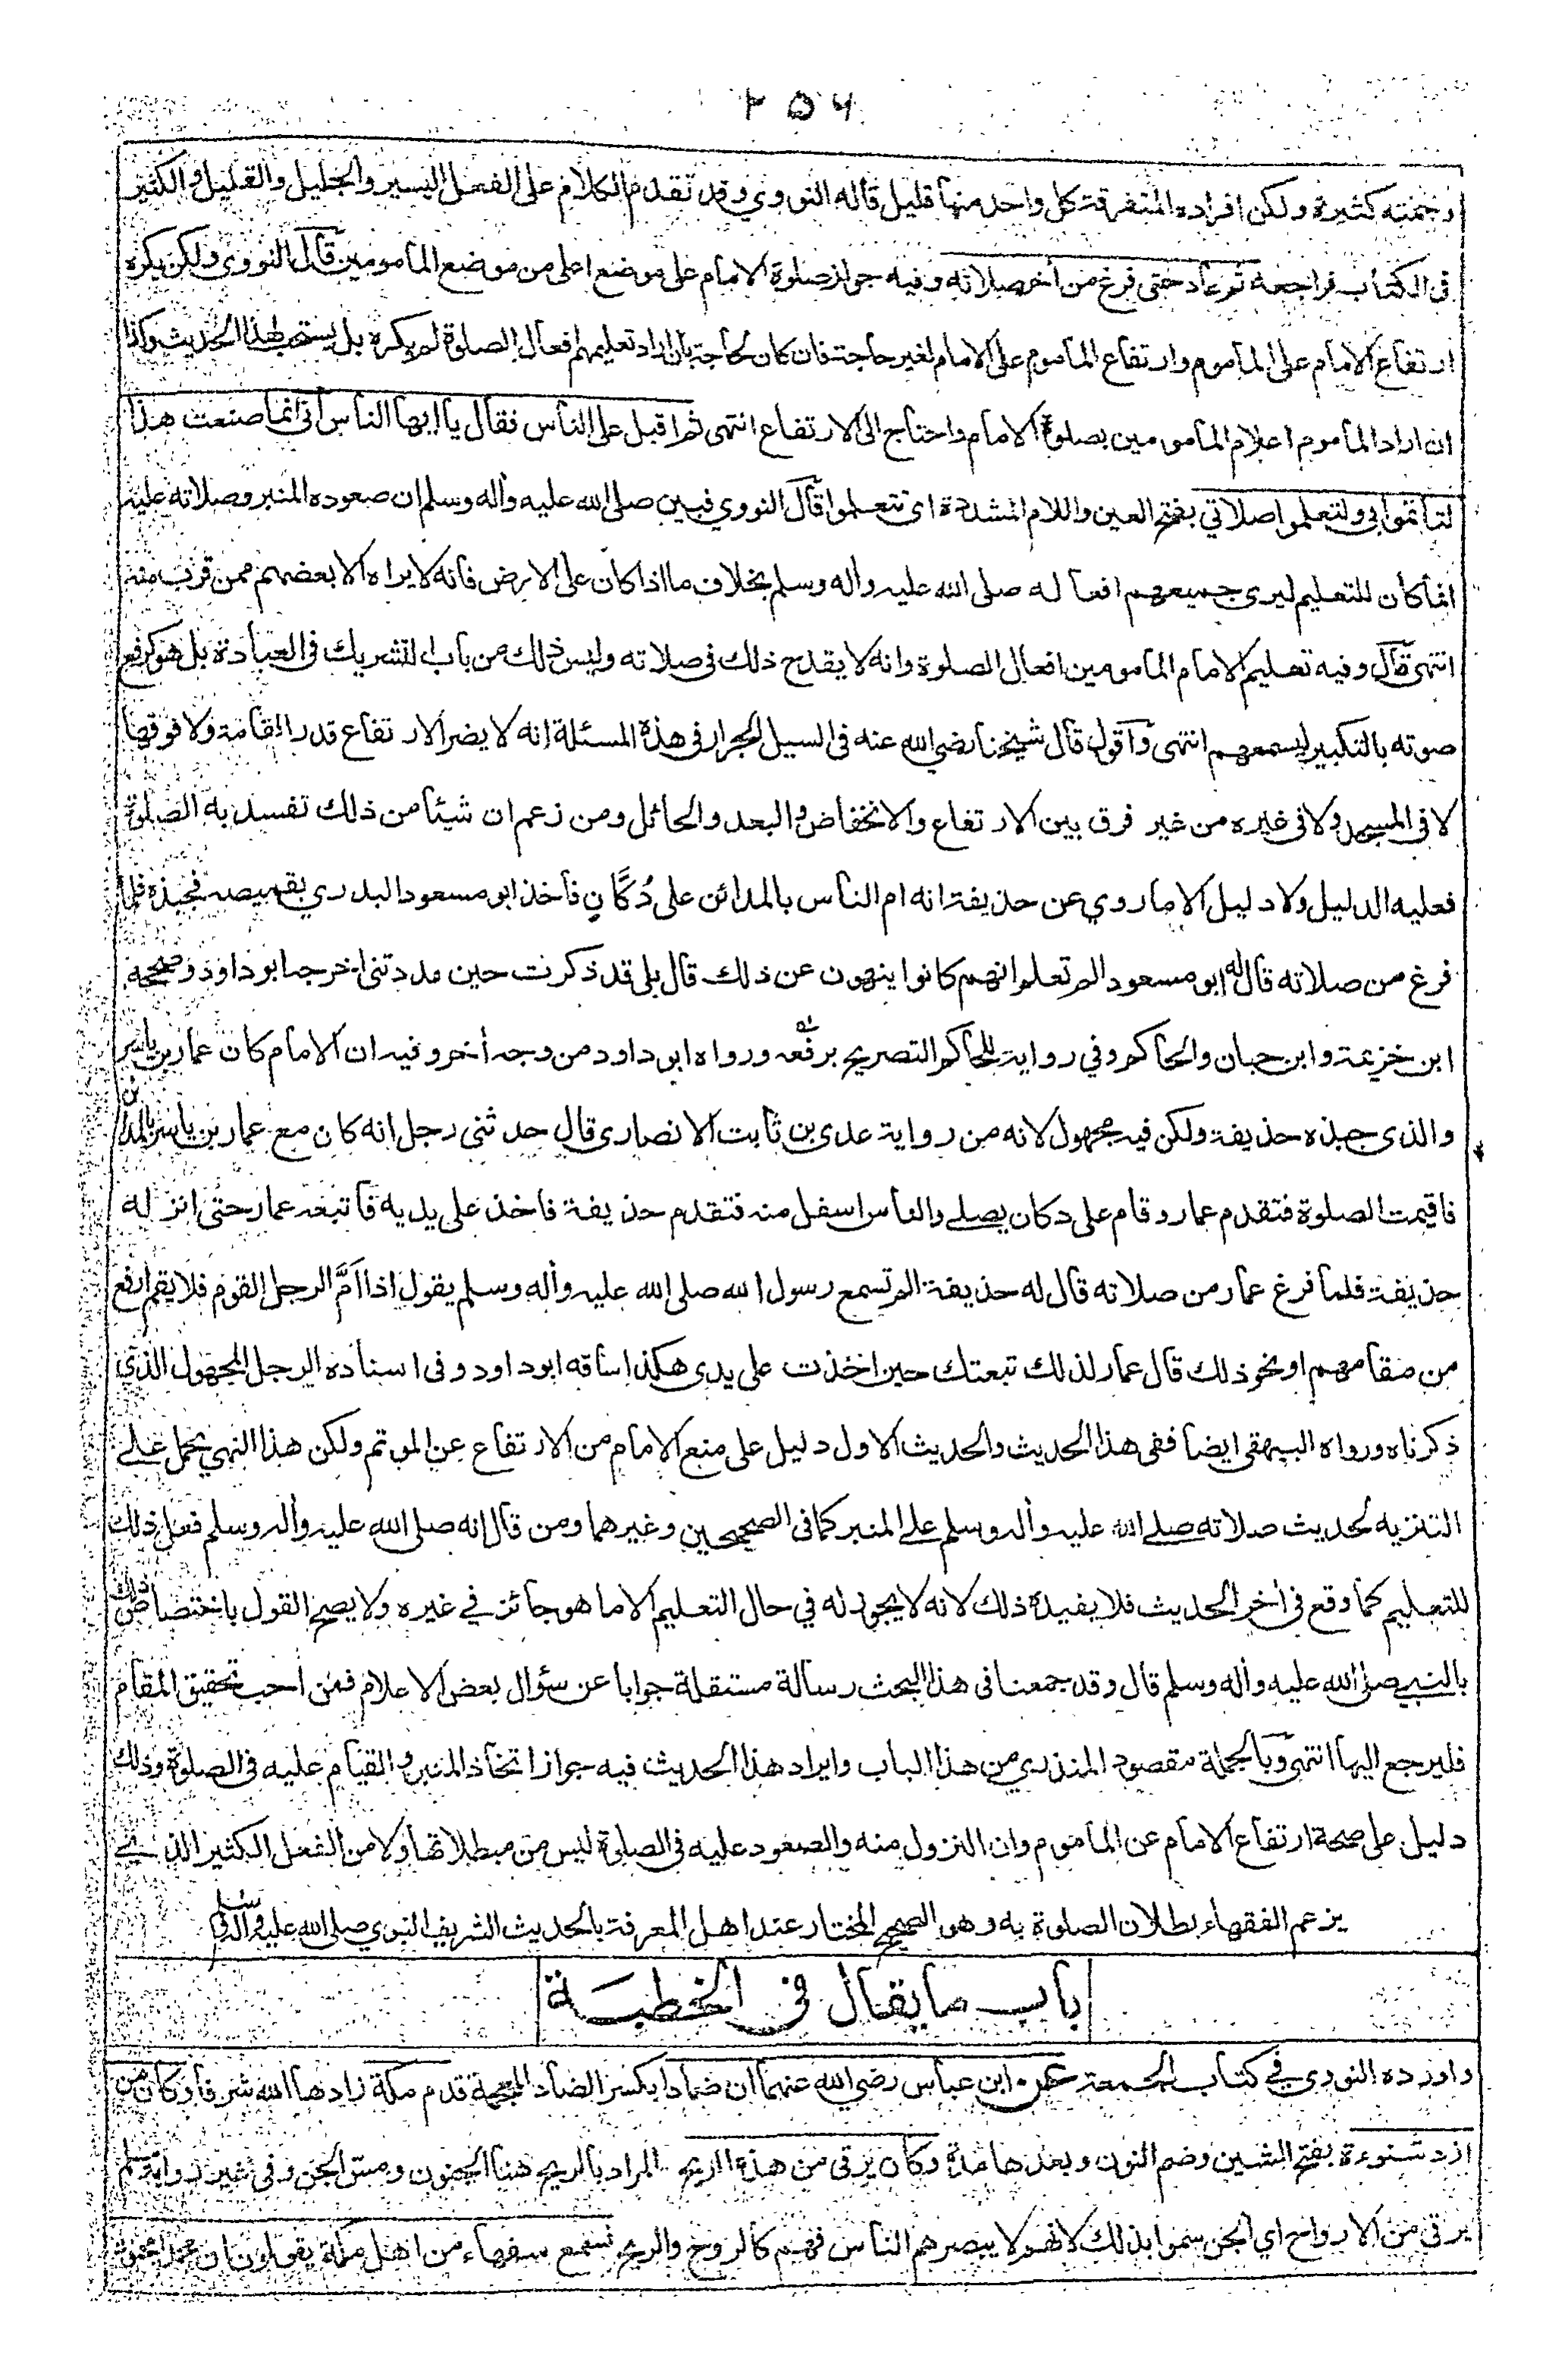 ٢٥٦
وجملته كثيرة ولكن افراده المتفرقة كل واحد منها قليل قاله النووي وقد تقدم الكلام على الفعل اليسير والجليل والقليل والكثير
فى الكتاب فراجعه ثم عاد حتى فرغ من أخر صلاته وفيه جواز صلوة الامام على موضع اعلى من موضع المأمومين قال النووي ولكن يكره
ارتفاع الامام على المأموم وارتفاع المأموم على الامام لغير حاجة فان كان لحاجة بان اراد تعليمهم افعال الصلوة لم يكره بل يستحب لهذا الحديث وكذا
ان اراد المأموم اعلام المأمومين بصلوة الامام واحتاج الى الارتفاع انتهى ثم اقبل على الناس فقال يا ايها الناس انى انما صنعت هذا
لتأتموا بي ولتعلموا صلاتي بفتح العين واللام المشددة اى تتعلموا قال النووي فبين صلى الله عليه وأله وسلم ان صعوده المنبر وصلاته عليه
انما كان للتعليم ليرى جميعهم افعاله صلى الله عليه وأله وسلم بخلاف ما اذا كان على الارض فانه لا يراه الا بعضهم ممن قرب منه
انتهى قال وفيه تعليم الامام المأمومين افعال الصلوة وانه لا يقدح ذلك فى صلاته وليس ذلك من باب التشريك فى العبادة بل هو كرفع
صوته بالتكبير ليسمعهم انتهى وأقول قال شيخنا رضي الله عنه فى السيل الجرار فى هذه المسئلة انه لا يضر الارتفاع قدر القامة ولا فوقها
لا فى المسجد ولا فى غيره من غير فرق بين الارتفاع والانخفاض والبعد والحائل ومن زعم ان شيئا من ذلك تفسد به الصلوة
فعليه الدليل ولا دليل الا ما روي عن حذيفة انه ام الناس بالمدائن على دُكَّانٍ فأخذ ابو مسعود البدري بقميصه فجبذه فلما
فرغ من صلاته قال له ابو مسعود الم تعلم انهم كانوا ينهون عن ذلك قال بلى قد ذكرت حين مددتنى اخرجه ابو داود وصححه
ابن خزيمة وابن حبان والحاكم وفي رواية للحاكم التصريح برفعه ورواه ابو داود من وجه أخر وفيه ان الامام كان عمار بن ياسر
والذى جبذه حذيفة ولكن فيه مجهول لانه من رواية عدى بن ثابت الانصارى قال حدثنى رجل انه كان مع عمار بن ياسر بالمدائن
فاقيمت الصلوة فتقدم عمار وقام على دكان يصلے والناس اسفل منه فتقدم حذيفة فاخذ على يديه فاتبعه عمار حتى انزله
حذيفة فلما فرغ عمار من صلاته قال له حذيفة الم تسمع رسول الله صلى الله عليه وأله وسلم يقول اذا أمَّ الرجل القوم فلا يقم ارفع
من مقامهم او نحو ذلك قال عمار لذلك تبعتك حين اخذت على يدى هكذا ساقه ابو داود وفى اسناده الرجل المجهول الذي
ذكرناه ورواه البيهقى ايضا ففى هذا الحديث والحديث الاول دليل على منع الامام من الارتفاع عن الموتم ولكن هذا النهي يحمل علے
التنزيه لحديث صلاته صلے الله عليه وأله وسلم علے المنبر كما فى الصحيحين وغيرهما ومن قال انه صلى الله عليه وأله وسلم فعل ذلك
للتعليم كما وقع فى أخر الحديث فلا يفيده ذلك لانه لا يجوز له في حال التعليم الا ما هو جائز في غيره ولا يصح القول باختصاص ذلك
بالنبي صلى الله عليه وأله وسلم قال وقد جمعنا فى هذا البحث رسالة مستقلة جوابا عن سؤال بعض الاعلام فمن احب تحقيق المقام
فليرجع اليها انتهى وبالجملة مقصود المنذري من هذا الباب وايراد هذا الحديث فيه جواز اتخاذ المنبر والقيام عليه فى الصلوة وذلك
دليل على صحة ارتفاع الامام عن المأموم وان النزول منه والصعود عليه فى الصلوة ليس من مبطلاتها ولا من الفعل الكثير الذي
يزعم الفقهاء بطلان الصلوة به وهو الصحيح المختار عند اهل المعرفة بالحديث الشريف النبوي صلى الله عليه وأله وسلم
باب ما يقال فى الخطبة
واورده النووي في كتاب الجمعة عن ابن عباس رضي الله عنهما ان ضمادا بكسر الضاد المعجمة قدم مكة زادها الله شرفا وكان من
ازد شنوءة بفتح الشين وضم النون وبعدها مدة وكان يرقى من هذه الريح المراد بالريح هنا الجنون ومس الجن وفى غير رواية مسلم
يرقى من الارواح اي الجن سموا بذلك لانهم لا يبصرهم الناس فهم كالروح والريح فسمع سفهاء من اهل مكة يقولون ان محمدا مجنون